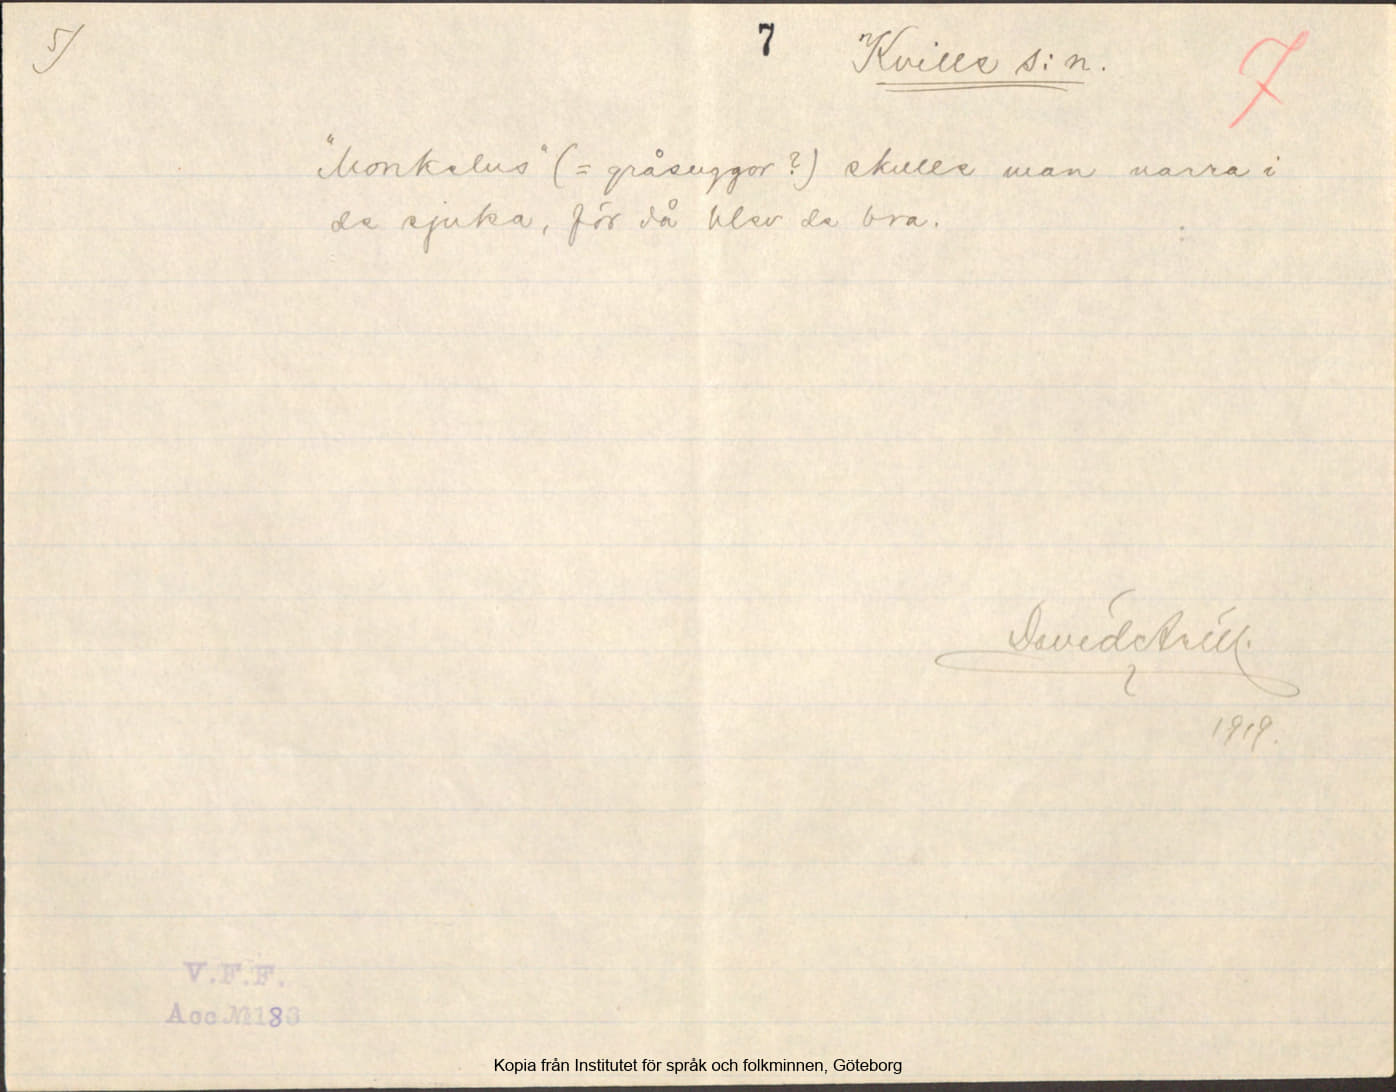 5/
7
Kville s:n.
7
"Monkelus" (= gråsuggor?) skulle man narra i
de sjuka, för då blev de bra.
David Arill.
1919.
V.F.F.
Acc № 183
Kopia från Institutet för språk och folkminnen, Göteborg